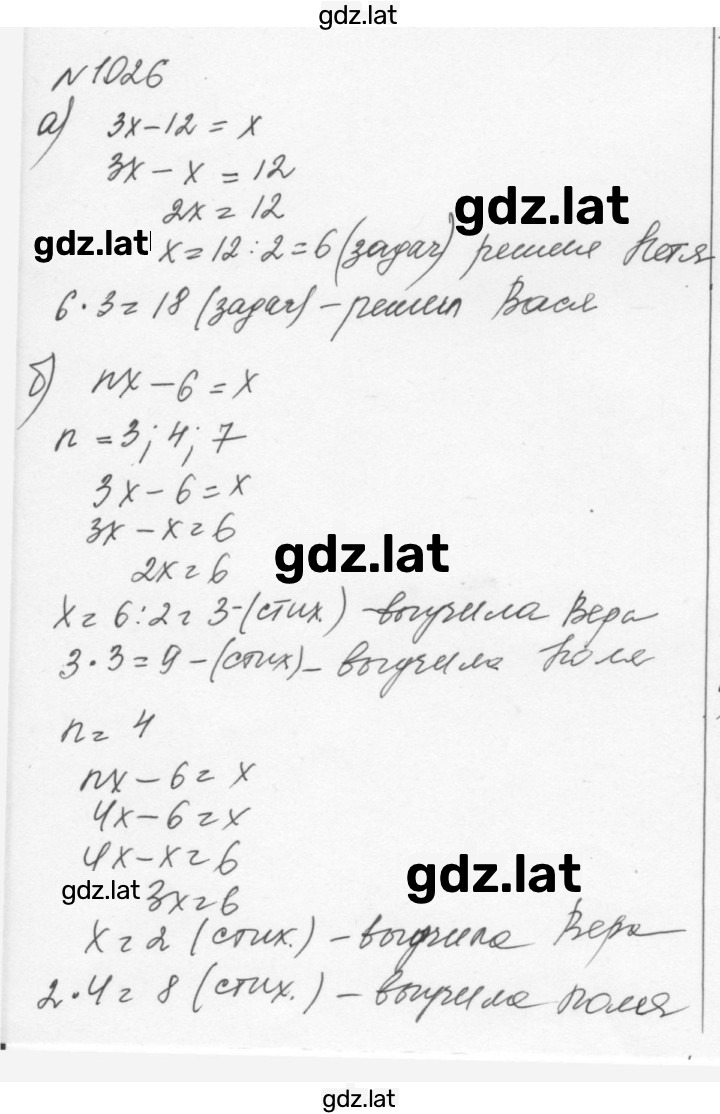 gdz.lat
№1026
а) 3x-12=x
3x-x=12
gdz.lat
2x=12
gdz.lat
x=12:2=6 (задач) решил Петя
6·3=18 (задач) - решил Вася
б) nx-6=x
n=3; 4; 7
3x-6=x
3x-x=6
gdz.lat
2x=6
x=6:2=3-(стих.) - выучила Вера
3·3=9-(стих)- выучила Поля
n=4
nx-6=x
4x-6=x
4x-x=6
gdz.lat
gdz.lat
3x=6
x=2 (стих.) - выучила Вера
2·4=8 (стих.) - выучила Поля
gdz.lat